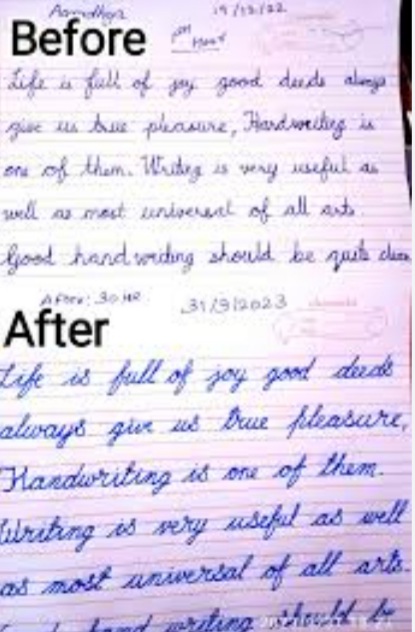 19/12/22
Before
Life is full of joy good deeds always
give us true pleasure, Handwriting is
one of them. Writing is very useful as
well as most universal of all arts.
Good handwriting should be quite clear
After: 30 HR 31/3/2023
After
Life is full of joy good deeds
always give us true pleasure,
Handwriting is one of them.
Writing is very useful as well
as most universal of all arts.
hand writing should b